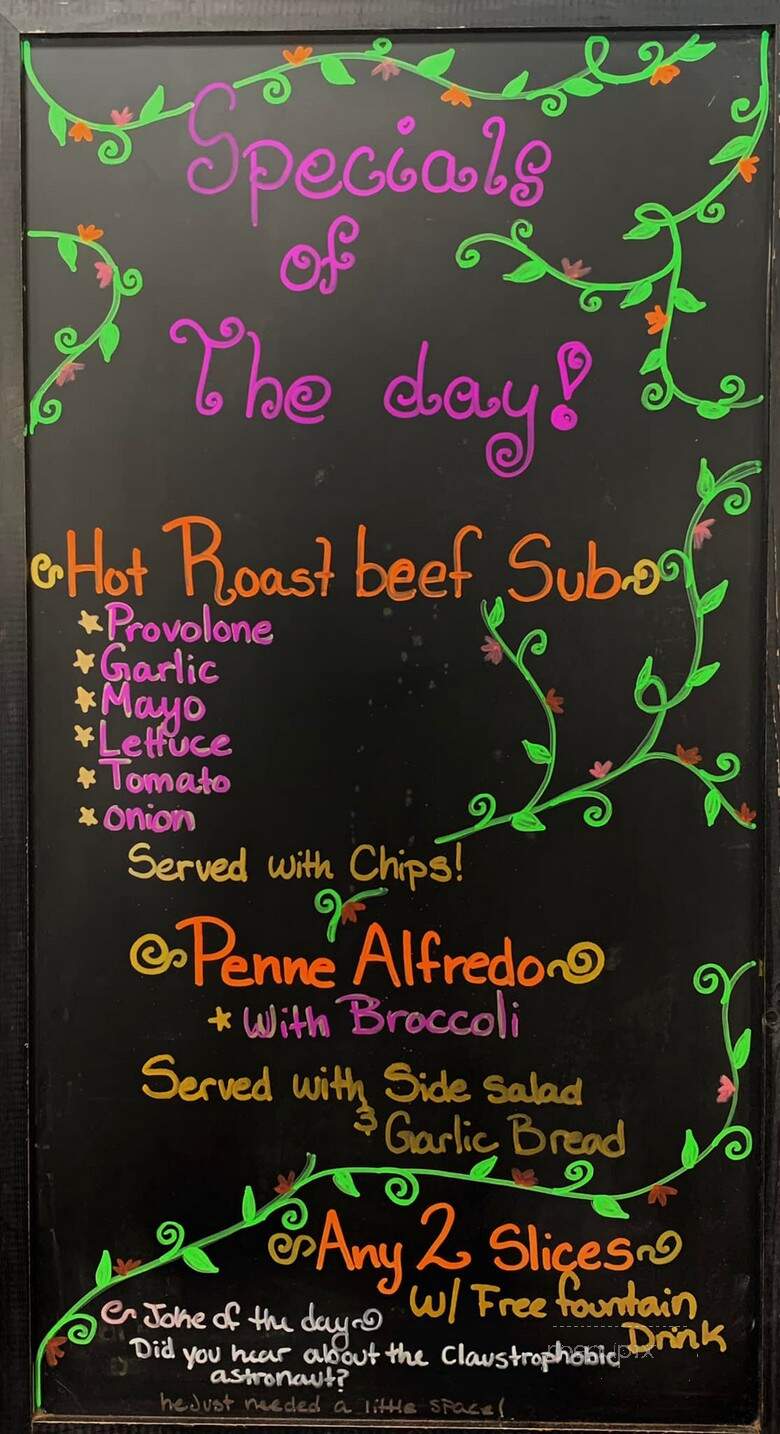 Specials
of
The day!
Hot Roast beef Sub
Provolone
Garlic
Mayo
Lettuce
Tomato
onion
Served with Chips!
Penne Alfredo
With Broccoli
Served with Side salad
& Garlic Bread
Any 2 Slices
W/ Free fountain
Drink
Joke of the day
Did you hear about the Claustrophobic
astronaut?
he Just needed a little space!